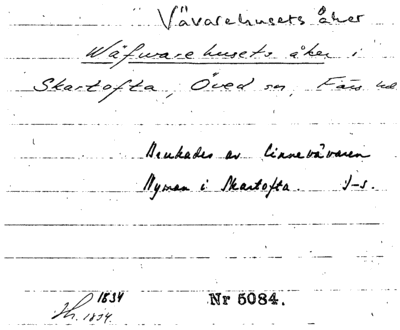 Vävarehusets åker
Wäfwarehusets åker i
Skartofta, Öved sn, Färs hd
Brukades av linnevävaren
Nyman i Skartofta. J-s.
1834
1834.
Nr 5084.